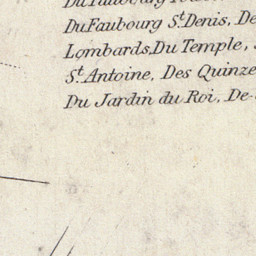 Du Faubourg St. Denis, De
Lombards, Du Temple,
St. Antoine, Des Quinze
Du Jardin du Roi, De